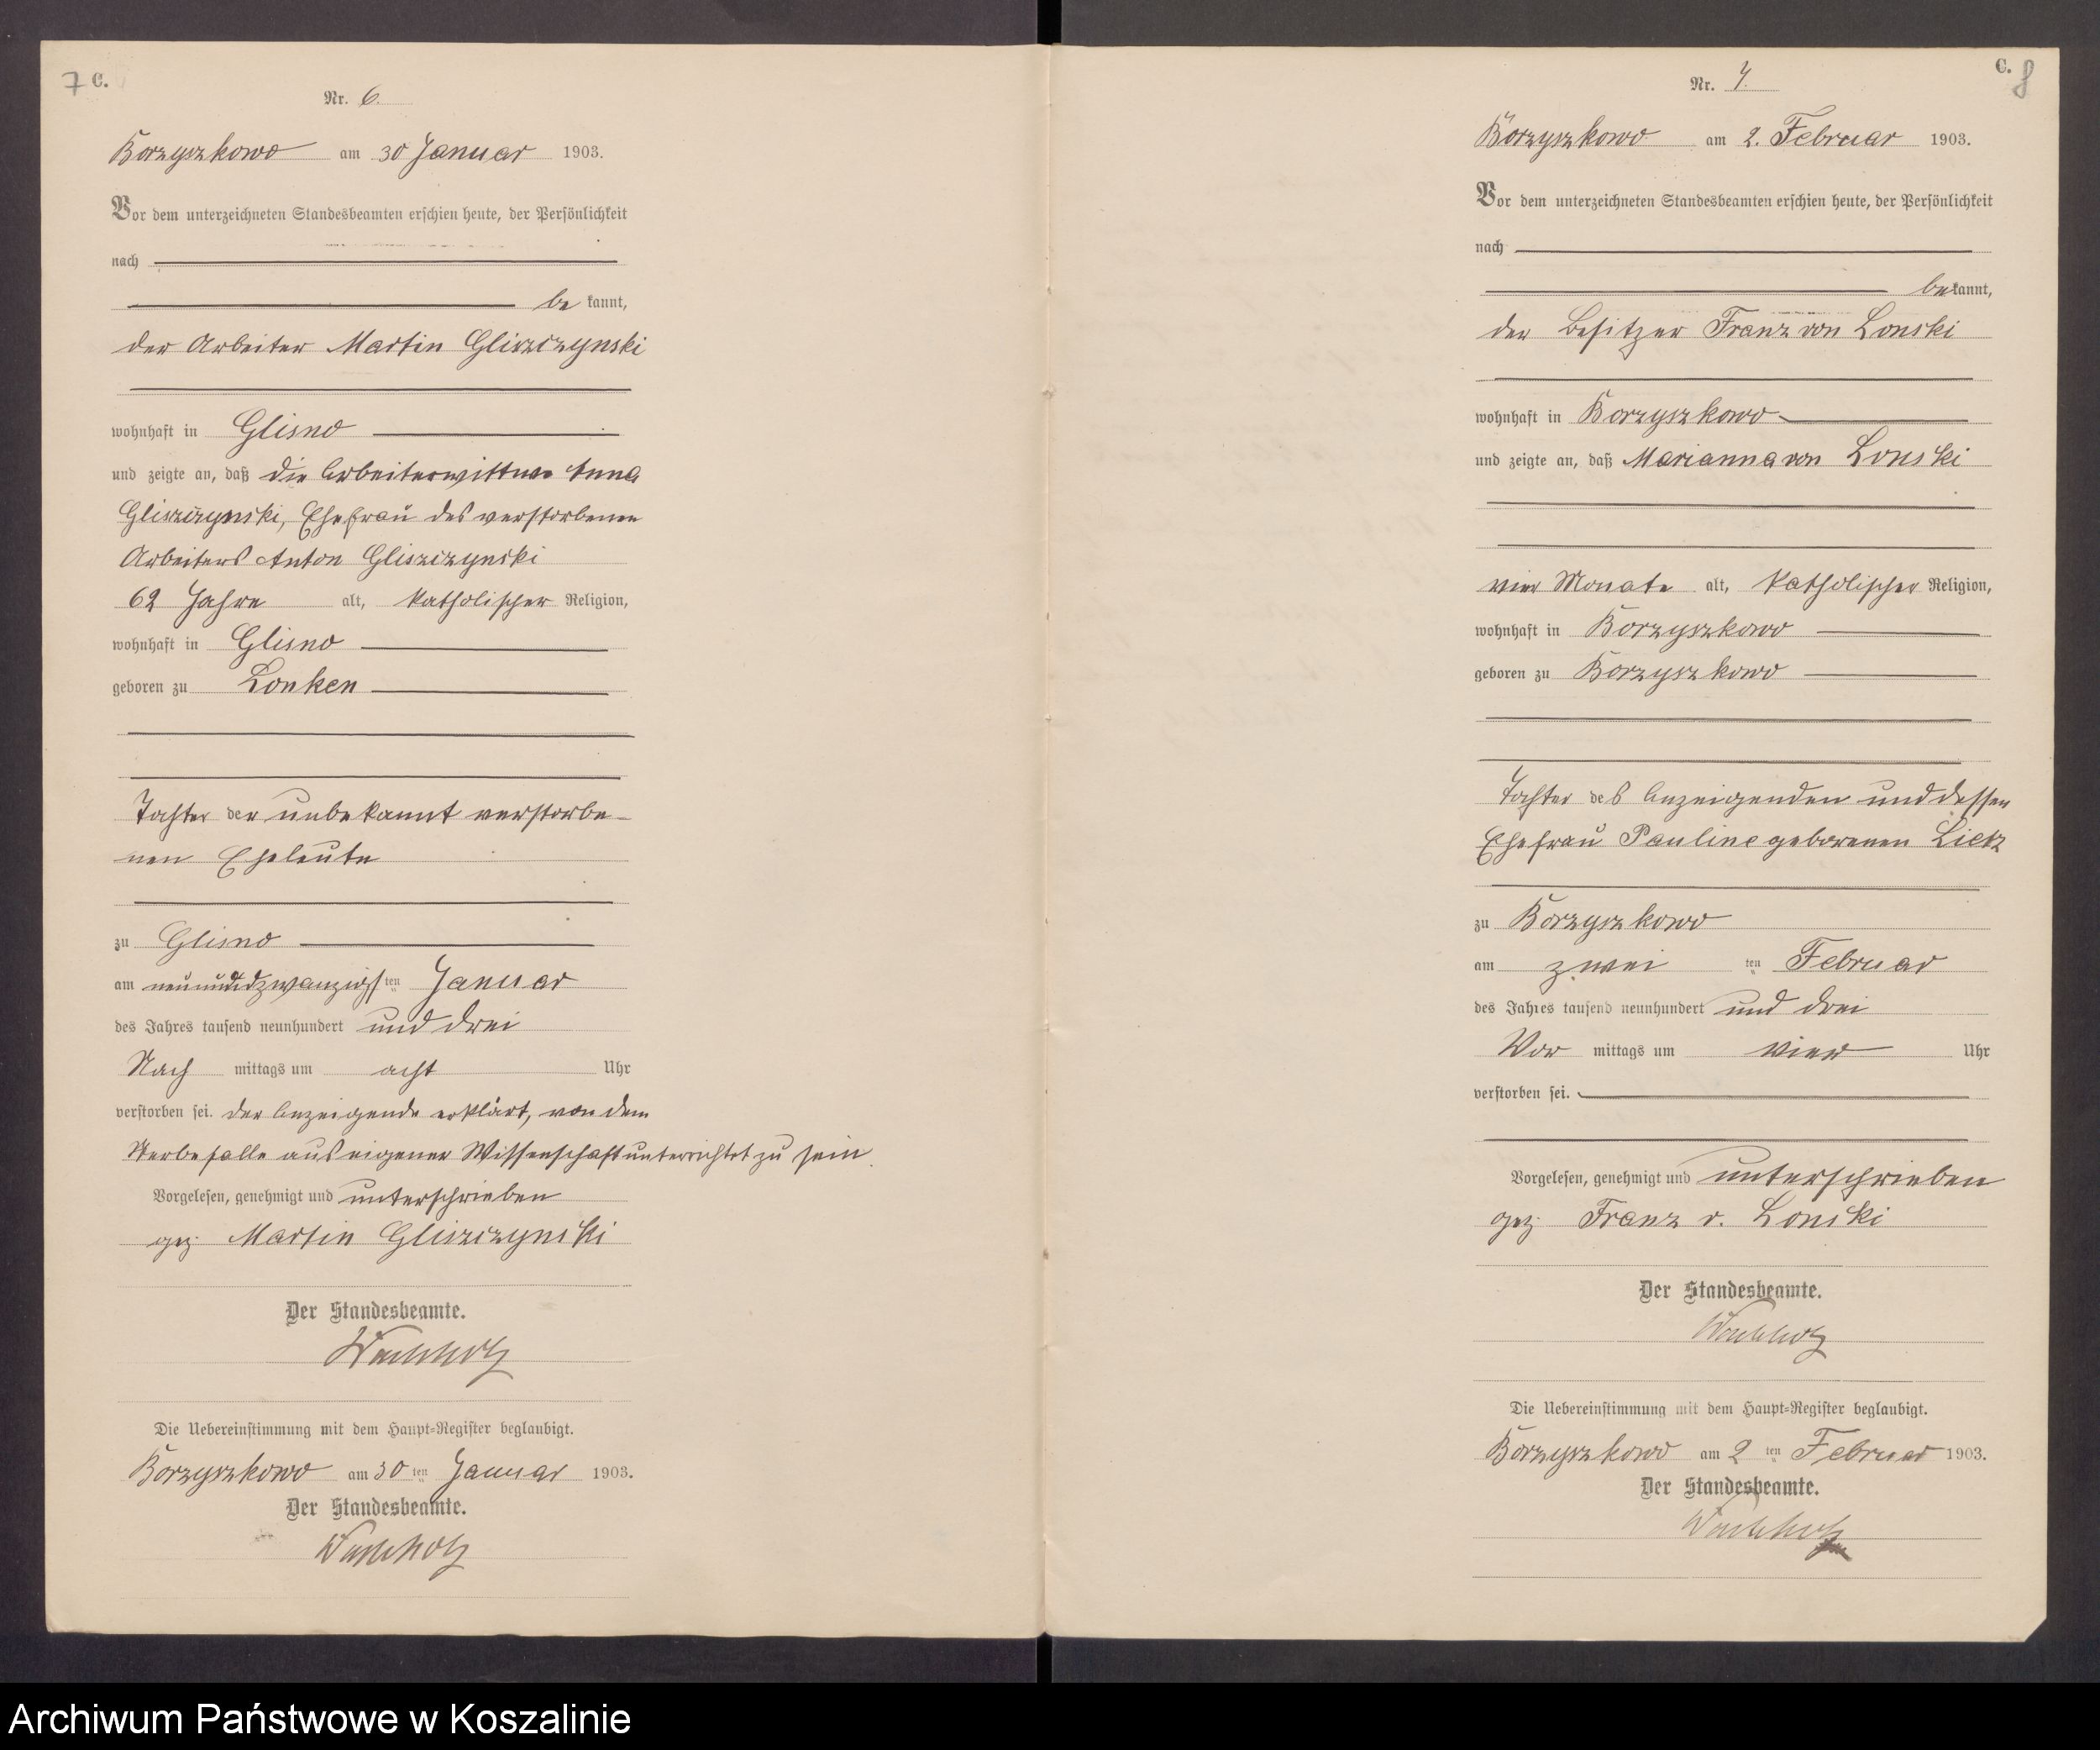 7 C.
Nr. 6.
Borzyszkowo am 30 Januar 1903.
Vor dem unterzeichneten Standesbeamten erschien heute, der Persönlichkeit
nach
be kannt,
der Arbeiter Martin Gliszczynski
wohnhaft in Glisno
und zeigte an, daß die Arbeiterwittwe Anna
Gliszczynski, Ehefrau des verstorbenen
Arbeiters Anton Gliszczynski
62 Jahre alt, katholischer Religion,
wohnhaft in Glisno
geboren zu Lonken
Tochter der unbekannt verstorbe-
nen Eheleute
zu Glisno
am neunundzwanzigsten Januar
des Jahres tausend neunhundert und drei
Nach mittags um acht Uhr
verstorben sei. der Anzeigende erklärt, von dem
Sterbefalle aus eigener Wissenschaft unterrichtet zu sein.
Vorgelesen, genehmigt und unterschrieben
gez. Martin Gliszczynski
Der Standesbeamte.
Wachholz
Die Uebereinstimmung mit dem Haupt-Register beglaubigt.
Borzyszkowo am 30 ten Januar 1903.
Der Standesbeamte.
Wachholz
C. 8
Nr. 7.
Borzyszkowo am 2. Februar 1903.
Vor dem unterzeichneten Standesbeamten erschien heute, der Persönlichkeit
nach
bekannt,
der Besitzer Franz von Lonski
wohnhaft in Borzyszkowo
und zeigte an, daß Marianna von Lonski
vier Monate alt, katholischer Religion,
wohnhaft in Borzyszkowo
geboren zu Borzyszkowo
Tochter des Anzeigenden und dessen
Ehefrau Pauline geborenen Lietz
zu Borzyszkowo
am zwei ten Februar
des Jahres tausend neunhundert und drei
Vor mittags um vier Uhr
verstorben sei.
Vorgelesen, genehmigt und unterschrieben
gez. Franz v. Lonski
Der Standesbeamte.
Wachholz
Die Uebereinstimmung mit dem Haupt-Register beglaubigt.
Borzyszkowo am 2 ten Februar 1903.
Der Standesbeamte.
Wachholz
Archiwum Państwowe w Koszalinie